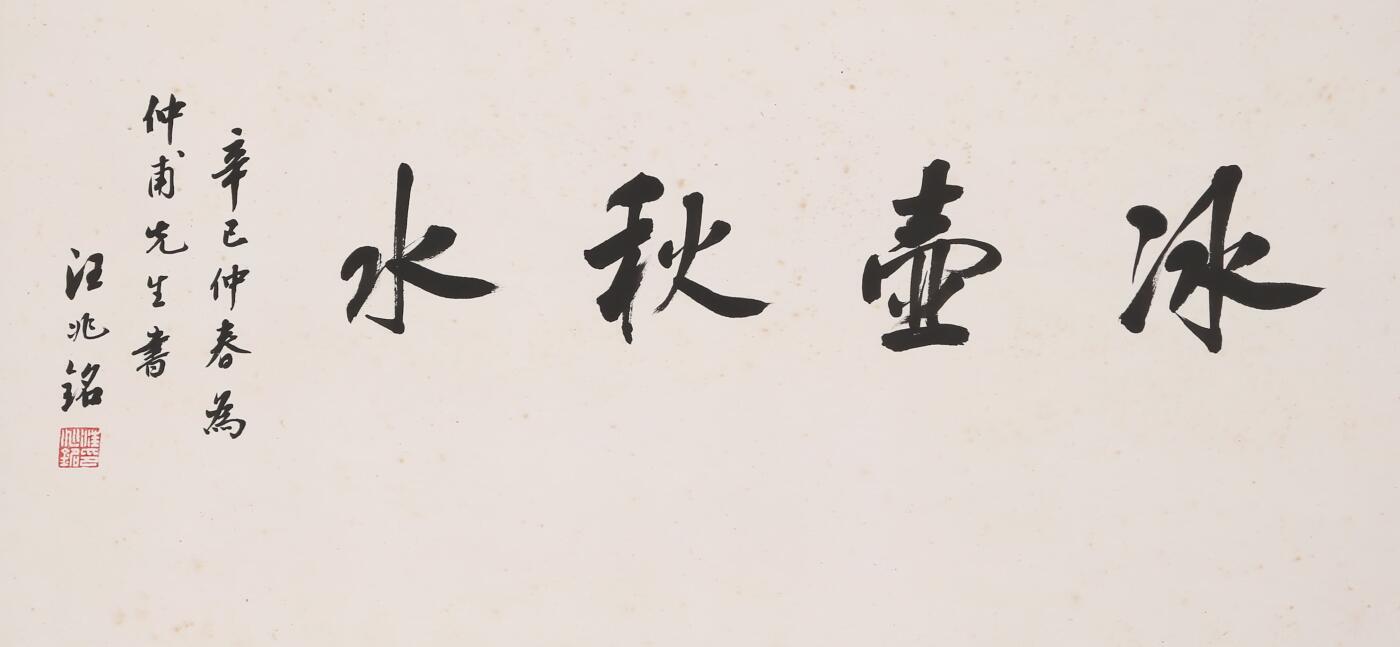 冰壺秋水
辛巳仲春為
仲甫先生書
汪兆銘
汪兆銘印